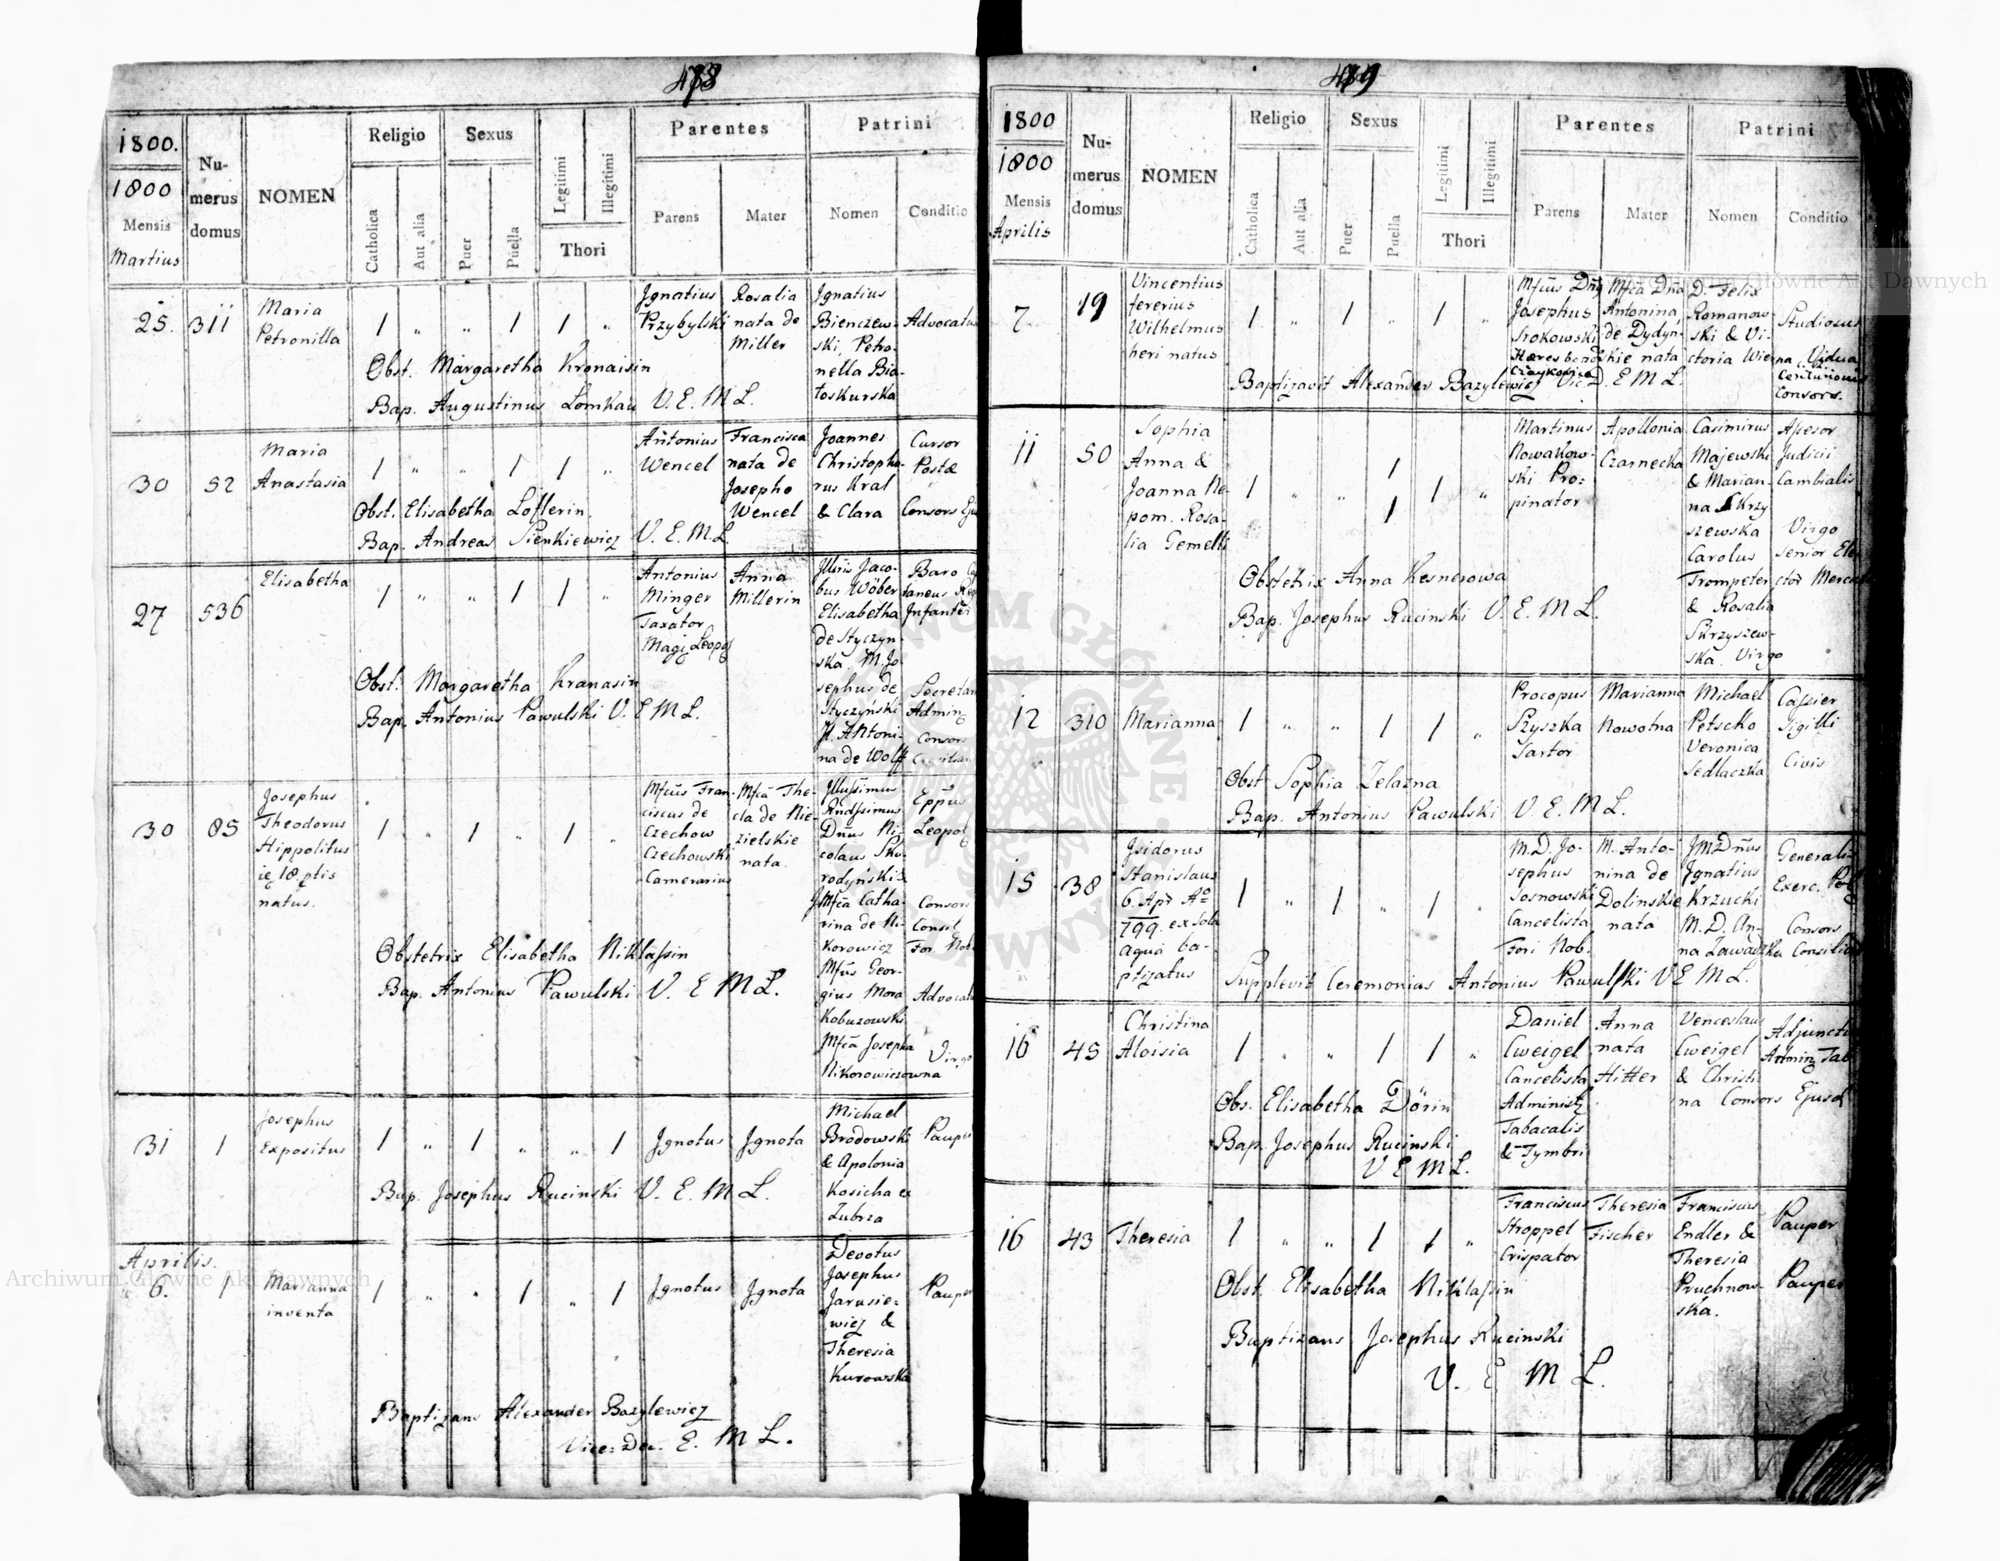 478
1800.
1800
Mensis
Martius
Numerus domus
NOMEN
Religio
Catholica
Aut alia
Sexus
Puer
Puella
Legitimi
Illegitimi
Thori
Parentes
Parens
Mater
Patrini
Nomen
Conditio
25. 311
Maria
Petronilla
1 " " 1 1 "
Ignatius
Przybylski
Rosalia
nata de
Miller
Ignatius
Bienczew-
ski, Petro-
nella Bia-
toskurska
Advocatus
Obst. Margaretha Kronaisin
Bap. Augustinus Lomkau V. E. M L.
30 52
Maria
Anastasia
1 " " 1 1 "
Antonius
Wencel
Francisca
nata de
Josepho
Wencel
Joannes
Christopho-
rus Kral
& Clara
Cursor
Postæ
Consors Eju
Obst. Elisabetha Loflerin.
Bap. Andreas Sienkiewicz V. E. M L.
27 536
Elisabetha
1 " " 1 1 "
Antonius
Minger
Taxator
Magi Leopol
Anna
Millerin
Illris Jaco-
bus Wöber
Elisabetha
de Styczyn-
ska. M. Jo-
sephus de
Styczyński
Il. Antoni-
na de Wolff
Baro
Infanteri
Secretar
Admin
Consors
Obst. Margaretha Kranasin
Bap. Antonius Pawulski V. E M L.
30 85
Josephus
Theodorus
Hippolitus
18 ptis
natus.
1 " 1 " 1 "
Mfcus Fran-
ciscus de
Czechow
Czechowski
Camerarius
Mfca The-
cla de Nie-
zielskie
nata.
Illussimus
Rndssimus
Dnus Ni-
colaus Sko-
rodyński &
Mfca Catha-
rina de Ni-
korowicz
Mfcus Geor-
gius Mora
Kobuzowski
Mfca Josepha
Nikorowiczowna
Eppus
Leopol
Consors
Consil
For. Nob.
Advocatus
Virgo
Obstetrix Elisabetha Niklassin
Bap. Antonius Pawulski V. E M L.
31 1
Josephus
Expositus
1 " 1 " " 1
Ignotus
Ignota
Michael
Brodowski
& Apolonia
Kosicha e
Zubrza
Pauper
Bap. Josephus Rucinski V. E. M L.
Aprilis.
6. 1
Marianna
inventa
1 " " 1 " 1
Ignotus
Ignota
Devotus
Josephus
Jarusie-
wicz &
Theresia
Kurowska
Pauper
Baptizans Alexander Bazylewicz
Vice-Dec. E. M L.
479
1800
1800
Mensis
Aprilis
Numerus domus
NOMEN
Religio
Catholica
Aut alia
Sexus
Puer
Puella
Legitimi
Illegitimi
Thori
Parentes
Parens
Mater
Patrini
Nomen
Conditio
7 19
Vincentius
fererius
Wilhelmus
heri natus
1 " 1 " 1 "
Mfcus Dns
Josephus
Srokowski
Hæres bonor
Czaykowice
Mfca Dna
Antonina
de Dydyń-
skie nata
D. Felix
Romanow-
ski & Vi-
ctoria Wierna
Studiosus
Vidua
Centurionis
Consors.
Baptizavit Alexander Bazylewicz Vic. D. E M L.
11 50
Sophia
Anna &
Joanna Ne-
pom. Rosa-
lia Gemelli
1 " " 1 1 "
1
Martinus
Nowakow-
ski Pro-
pinator
Apollonia
Czarnecka
Casimirus
Majewski
& Marian-
na Skrzy
szewska
Carolus
Trompeter
& Rosalia
Skrzyszew-
ska. Virgo
Assesor
Judicii
Cambialis
Virgo
Senior Ele-
ctor Merca
Obstetrix Anna Kesnerowa
Bap. Josephus Rucinski V. E. M L.
12 310
Marianna
1 " " 1 1 "
Procopus
Szyszka
Sartor
Marianna
Nowotna
Michael
Petscho
Veronica
Sedlaczka
Cassier
Sigilli
Civis
Obst Sophia Zelazna
Bap. Antonius Pawulski V. E. M L.
15 38
Isidorus
Stanislaus
6. Apr Aº
799. ex sola
aqua ba-
ptizatus
1 " 1 " 1 "
M. D. Jo-
sephus
Sosnowski
Cancelista
Fori Nob.
M. Anto-
nina de
Dolinskie
nata
JM Dnus
Ignatius
Krzucki
M. D. An-
na Zawadzka
Generalis
Exerc. Pol
Consors
Consiliar
Supplevit Ceremonias Antonius Pawulski V E M L.
16 45
Christina
Aloisia
1 " " 1 1 "
Daniel
Cweigel
Cancelista
Administ
Tabacalis
& Tymbri
Anna
nata
Hitter
Venceslaus
Cweigel
& Christi
na Consors Ejusd
Adjunctus
Admin Tab
Obs. Elisabetha Dörin
Bap. Josephus Rucinski
V E M L.
16 43
Theresia
1 " " 1 1 "
Franciscus
Stroppel
Crispator
Theresia
Fischer
Franciscus
Endler &
Theresia
Pruchnow-
ska.
Pauper
Pauper
Obst. Elisabetha Niklassin
Baptizans Josephus Rucinski
V. E M L.
Archiwum Główne Akt Dawnych
Archiwum Główne Akt Dawnych